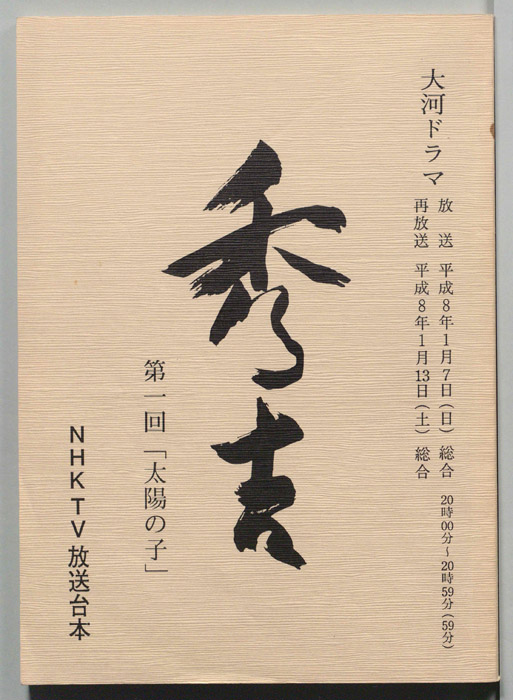 大河ドラマ
放送 平成8年1月7日(日) 総合 20時00分~20時59分(59分)
再放送 平成8年1月13日(土) 総合
秀吉
第一回「太陽の子」
NHKTV放送台本